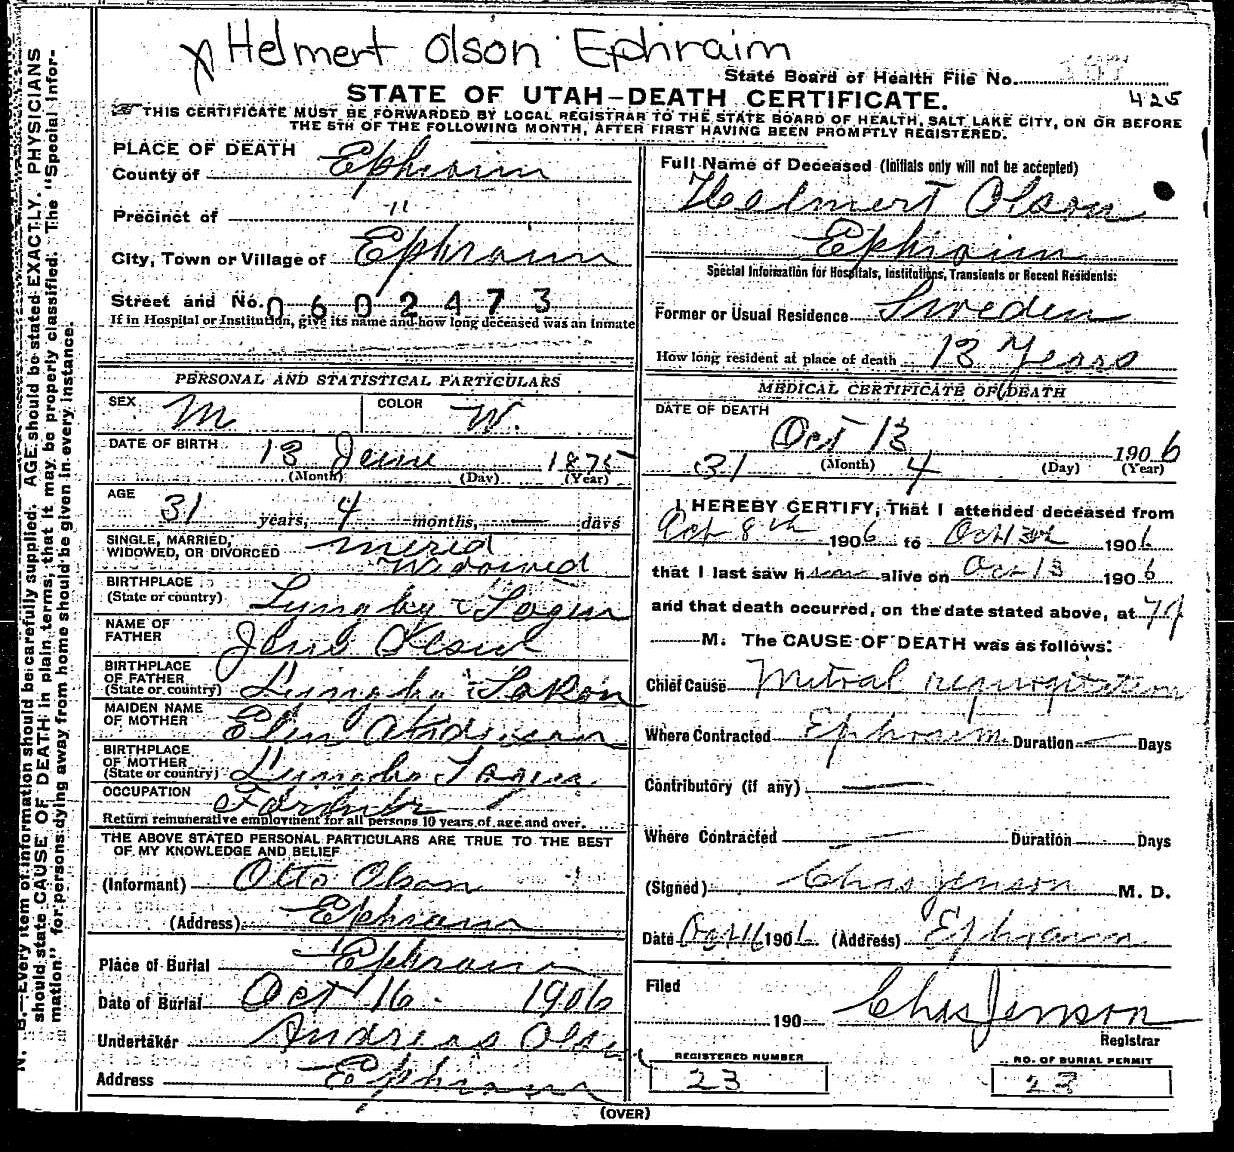 Helmert Olson Ephraim
State Board of Health File No.
425
STATE OF UTAH—DEATH CERTIFICATE.
THIS CERTIFICATE MUST BE FORWARDED BY LOCAL REGISTRAR TO THE STATE BOARD OF HEALTH, SALT LAKE CITY, ON OR BEFORE
THE 5TH OF THE FOLLOWING MONTH, AFTER FIRST HAVING BEEN PROMPTLY REGISTERED.
N. B.—Every item of information should be carefully supplied. AGE should be stated EXACTLY. PHYSICIANS
should state CAUSE OF DEATH in plain terms, that it may be properly classified. The "Special Infor-
mation" for persons dying away from home should be given in every instance.
PLACE OF DEATH
County of Ephraim
Precinct of "
City, Town or Village of Ephraim
Street and No. 0602473
If in Hospital or Institution, give its name and how long deceased was an inmate
PERSONAL AND STATISTICAL PARTICULARS
SEX M COLOR W.
DATE OF BIRTH 13 June 1875
(Month) (Day) (Year)
AGE 31 years, 4 months, — days
SINGLE, MARRIED,
WIDOWED, OR DIVORCED
Widowed
BIRTHPLACE
(State or country) Lungby
NAME OF
FATHER Jens Olson
BIRTHPLACE
OF FATHER
(State or country)
MAIDEN NAME
OF MOTHER Elin
BIRTHPLACE
OF MOTHER
(State or country)
OCCUPATION
Return remunerative employment for all persons 10 years of age and over.
THE ABOVE STATED PERSONAL PARTICULARS ARE TRUE TO THE BEST
OF MY KNOWLEDGE AND BELIEF
(Informant) Otto Olson
(Address) Ephraim
Place of Burial Ephraim
Date of Burial Oct 16. 1906
Undertaker Andreas Olsen
Address Ephraim
Full Name of Deceased (Initials only will not be accepted)
Helmert Olson
Ephraim
Special Information for Hospitals, Institutions, Transients or Recent Residents:
Former or Usual Residence Sweden
How long resident at place of death 13 Years
MEDICAL CERTIFICATE OF DEATH
DATE OF DEATH
Oct 13 1906
31 (Month) 4 (Day) (Year)
I HEREBY CERTIFY, That I attended deceased from
8th 1906 to Oct 13 1906
that I last saw him alive on Oct 13 1906
and that death occurred, on the date stated above, at 7
M. The CAUSE OF DEATH was as follows:
Chief Cause Mitral regurgitation
Where Contracted Ephraim Duration — Days
Contributory (if any) —
Where Contracted — Duration Days
(Signed) Chas Jenson M. D.
Date Oct 16 1906 (Address) Ephraim
Filed
190 Chas Jenson
Registrar
REGISTERED NUMBER
23
NO. OF BURIAL PERMIT
23
(OVER)